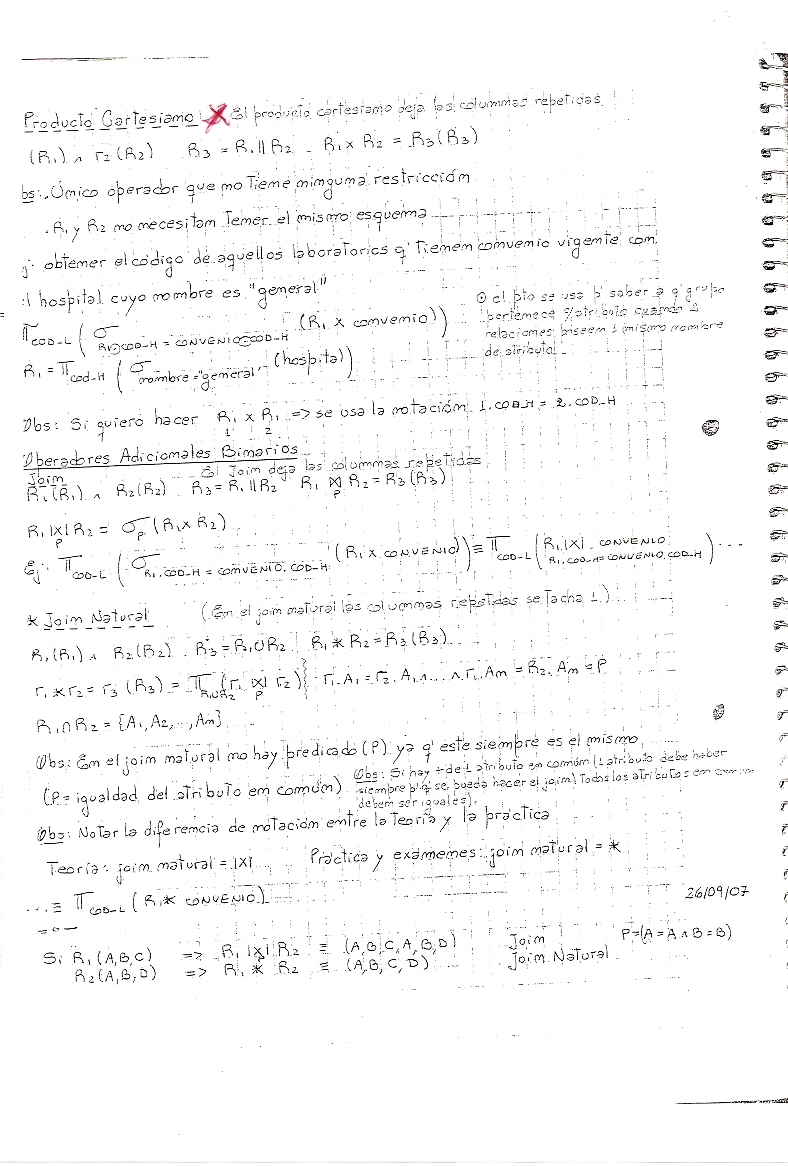 Producto Cartesiano: X El producto cartesiano deja las columnas repetidas !
(R1) ∧ r2 (R2) R3 = R1 || R2 - R1 x R2 = R3 (R3)
bs: . Único operador que no tiene ninguna restricción
. R1 y R2 no necesitan tener el mismo esquema
j: obtener el código de aquellos laboratorios q' tienen convenio vigente con
l hospital cuyo nombre es "general"
π COD-L ( σ R1⊙COD-H = CONVENIO⊙COD-H (R1 x convenio))
⊙ el pto se usa p' saber a q' grupo
pertenece c/atributo cuando 2
relaciones poseen 1 mismo nombre
de atributo.
R1 = π cod-H ( σ nombre = "general" (hospital))
Obs: Si quiero hacer R1 x R1 => se usa la notación 1.COD_H = 2.COD_H
1 2
Operadores Adicionales Binarios
Join El Join deja las columnas repetidas
R1 (R1) ∧ R2 (R2) R3 = R1 || R2 R1 |X| P R2 = R3 (R3)
R1 |X| P R2 = σ P (R1 x R2)
Ej: π COD-L ( σ R1.COD-H = CONVENIO.COD-H (R1 x CONVENIO)) ≡ π COD-L ( R1 |X| R1.COD-H = CONVENIO.COD-H CONVENIO ) ...
* Join Natural (En el join natural las columnas repetidas se tacha 1)
R1 (R1) ∧ R2 (R2) R3 = R1 ∪ R2 R1 * R2 = R3 (R3)
r1 * r2 = r3 (R3) = π R1∪R2 (r1 |X| P r2) } r1.A1 = r2.A1 ∧ ... ∧ r1.An = R2.An = P
R1 ∩ R2 = {A1, A2, ..., An}
Obs: En el join natural no hay predicado (P) ya q' este siempre es el mismo
(P = igualdad del atributo en común)
Obs: Si hay + de 1 atributo en común (1 atributo debe haber
siempre p' q' se pueda hacer el join) Todos los atributos en común
deben ser iguales).
Obs: Notar la diferencia de notación entre la teoría y la práctica
Teoría: join natural = |X| Práctica y exámenes: join natural = *
... ≡ π COD-L (R1 * CONVENIO)
26/09/07
= o -
Si R1 (A,B,C) => R1 |X| R2 ≡ (A,B,C,A,B,D) Join P = (A = A ∧ B = B)
R2 (A,B,D) => R1 * R2 ≡ (A,B,C,D) Join Natural